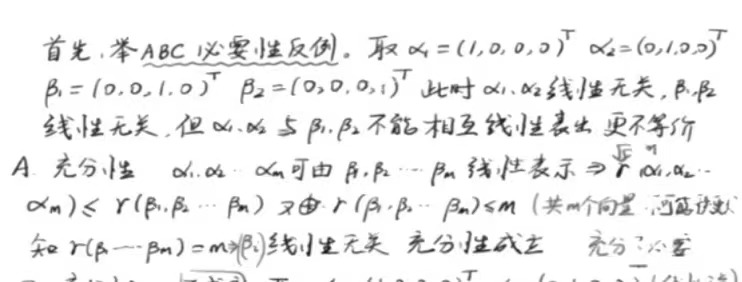 首先,举ABC必要性反例。取 α₁=(1,0,0,0)ᵀ α₂=(0,1,0,0)ᵀ
β₁=(0,0,1,0)ᵀ β₂=(0,0,0,1)ᵀ 此时α₁,α₂线性无关,β₁,β₂
线性无关,但α₁,α₂与β₁,β₂不能相互线性表出 更不等价
A. 充分性 α₁,α₂…αₘ可由β₁,β₂…βₘ线性表示 ⇒ r(α₁,α₂…
αₘ)≤ r(β₁,β₂…βₘ) 又由 r(β₁,β₂…βₘ)≤m (共m个向量
知 r(β₁…βₘ)=m⇒(βᵢ)线性无关 充分性成立 充分